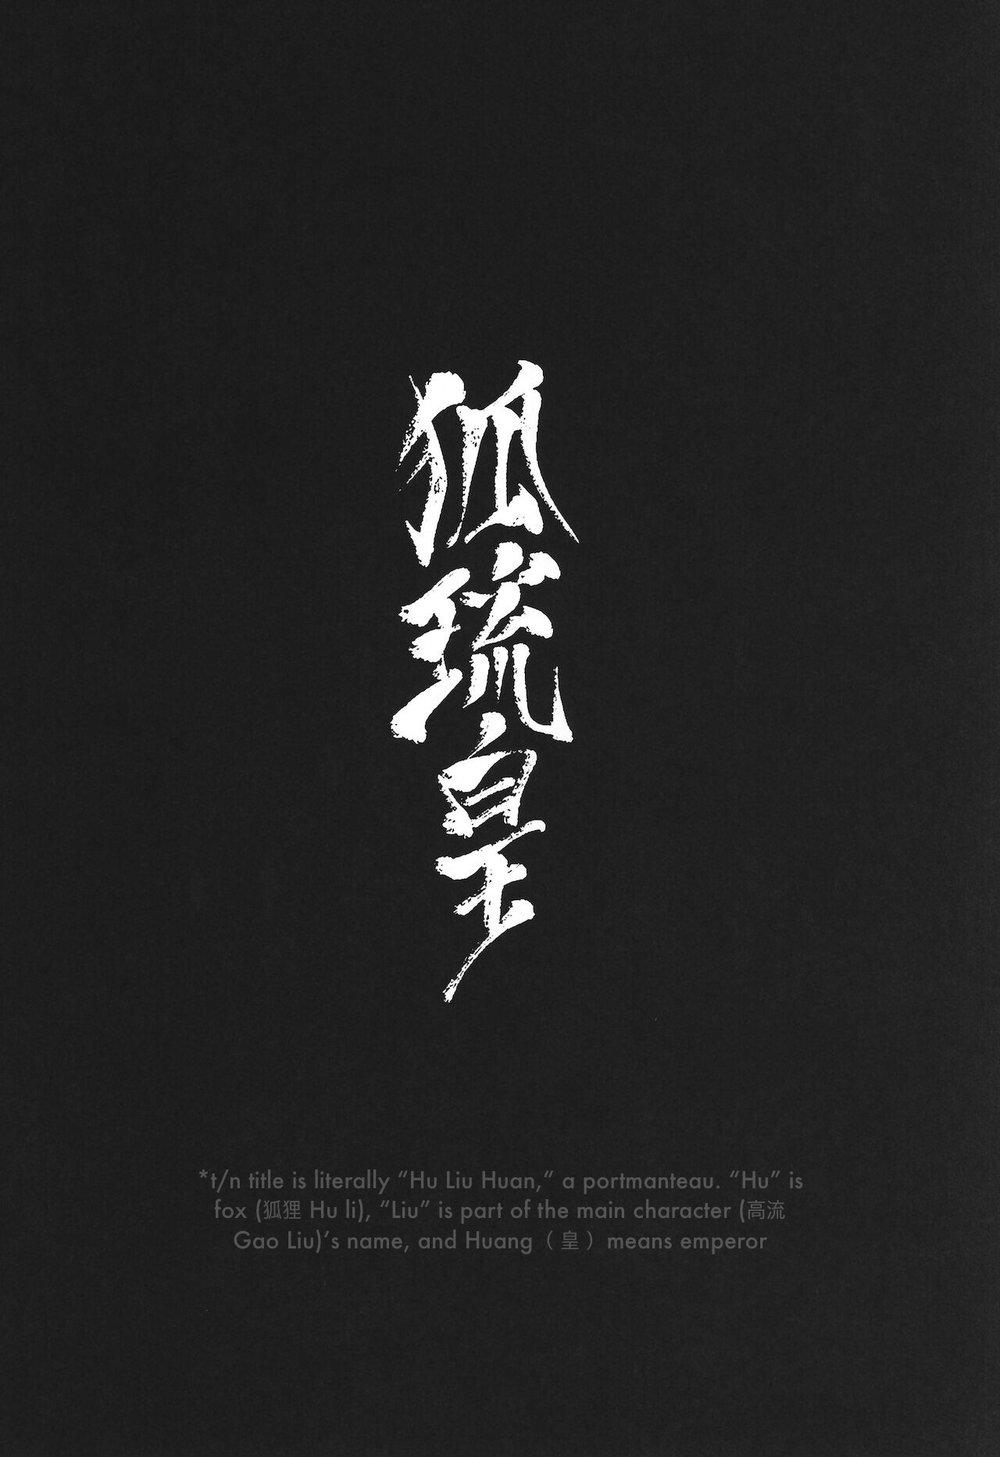 狐琉皇
*t/n title is literally “Hu Liu Huan,“ a portmanteau. “Hu” is
fox (狐狸 Hu li), “Liu” is part of the main character (高流
Gao Liu)’s name, and Huang（皇）means emperor